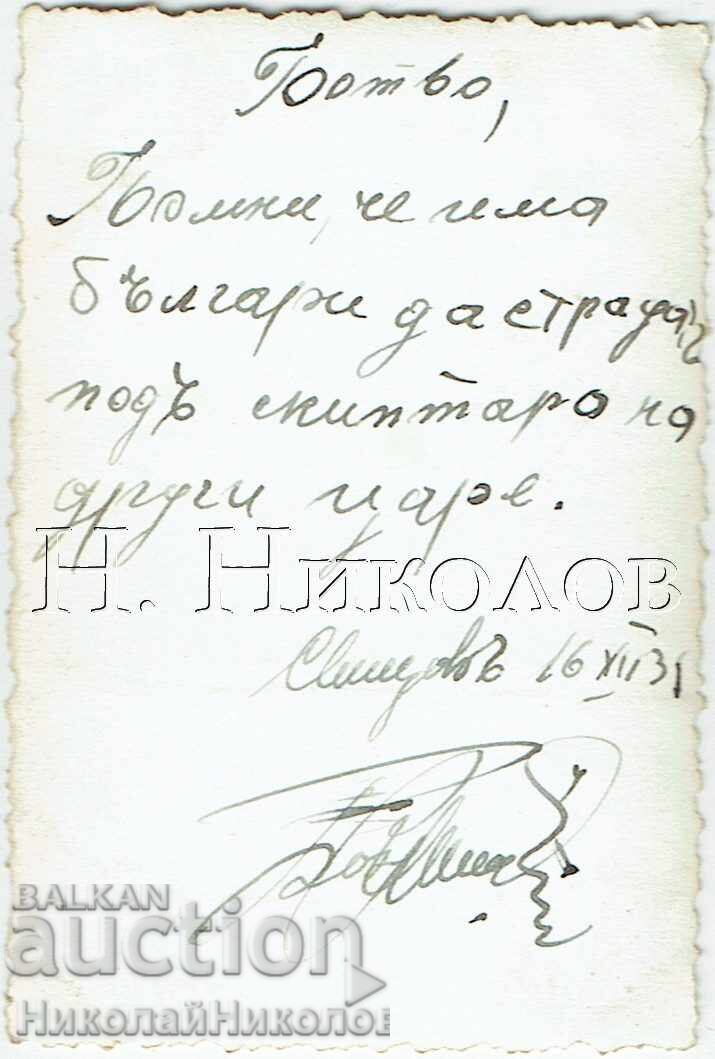 Ботьо,
Помни, че има
българи да страдат
подъ скиптара на
други царе.
Н. Николов
Свищовъ 16 XII 31
BALKAN
auction
НиколайНиколов